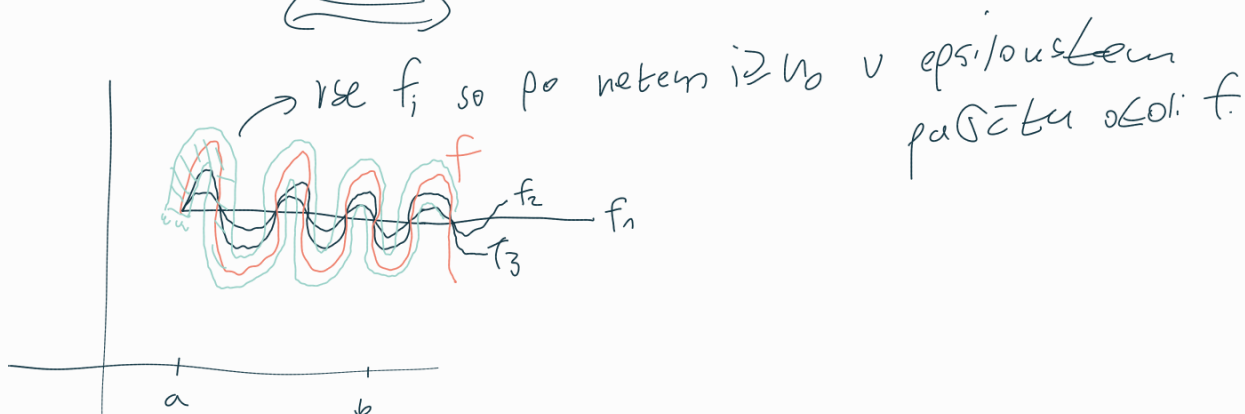 vse fi so po netem i≥n₀ v epsilonstem
pasčtu okoli f.
f
f₂
f₁
f₃
a
b